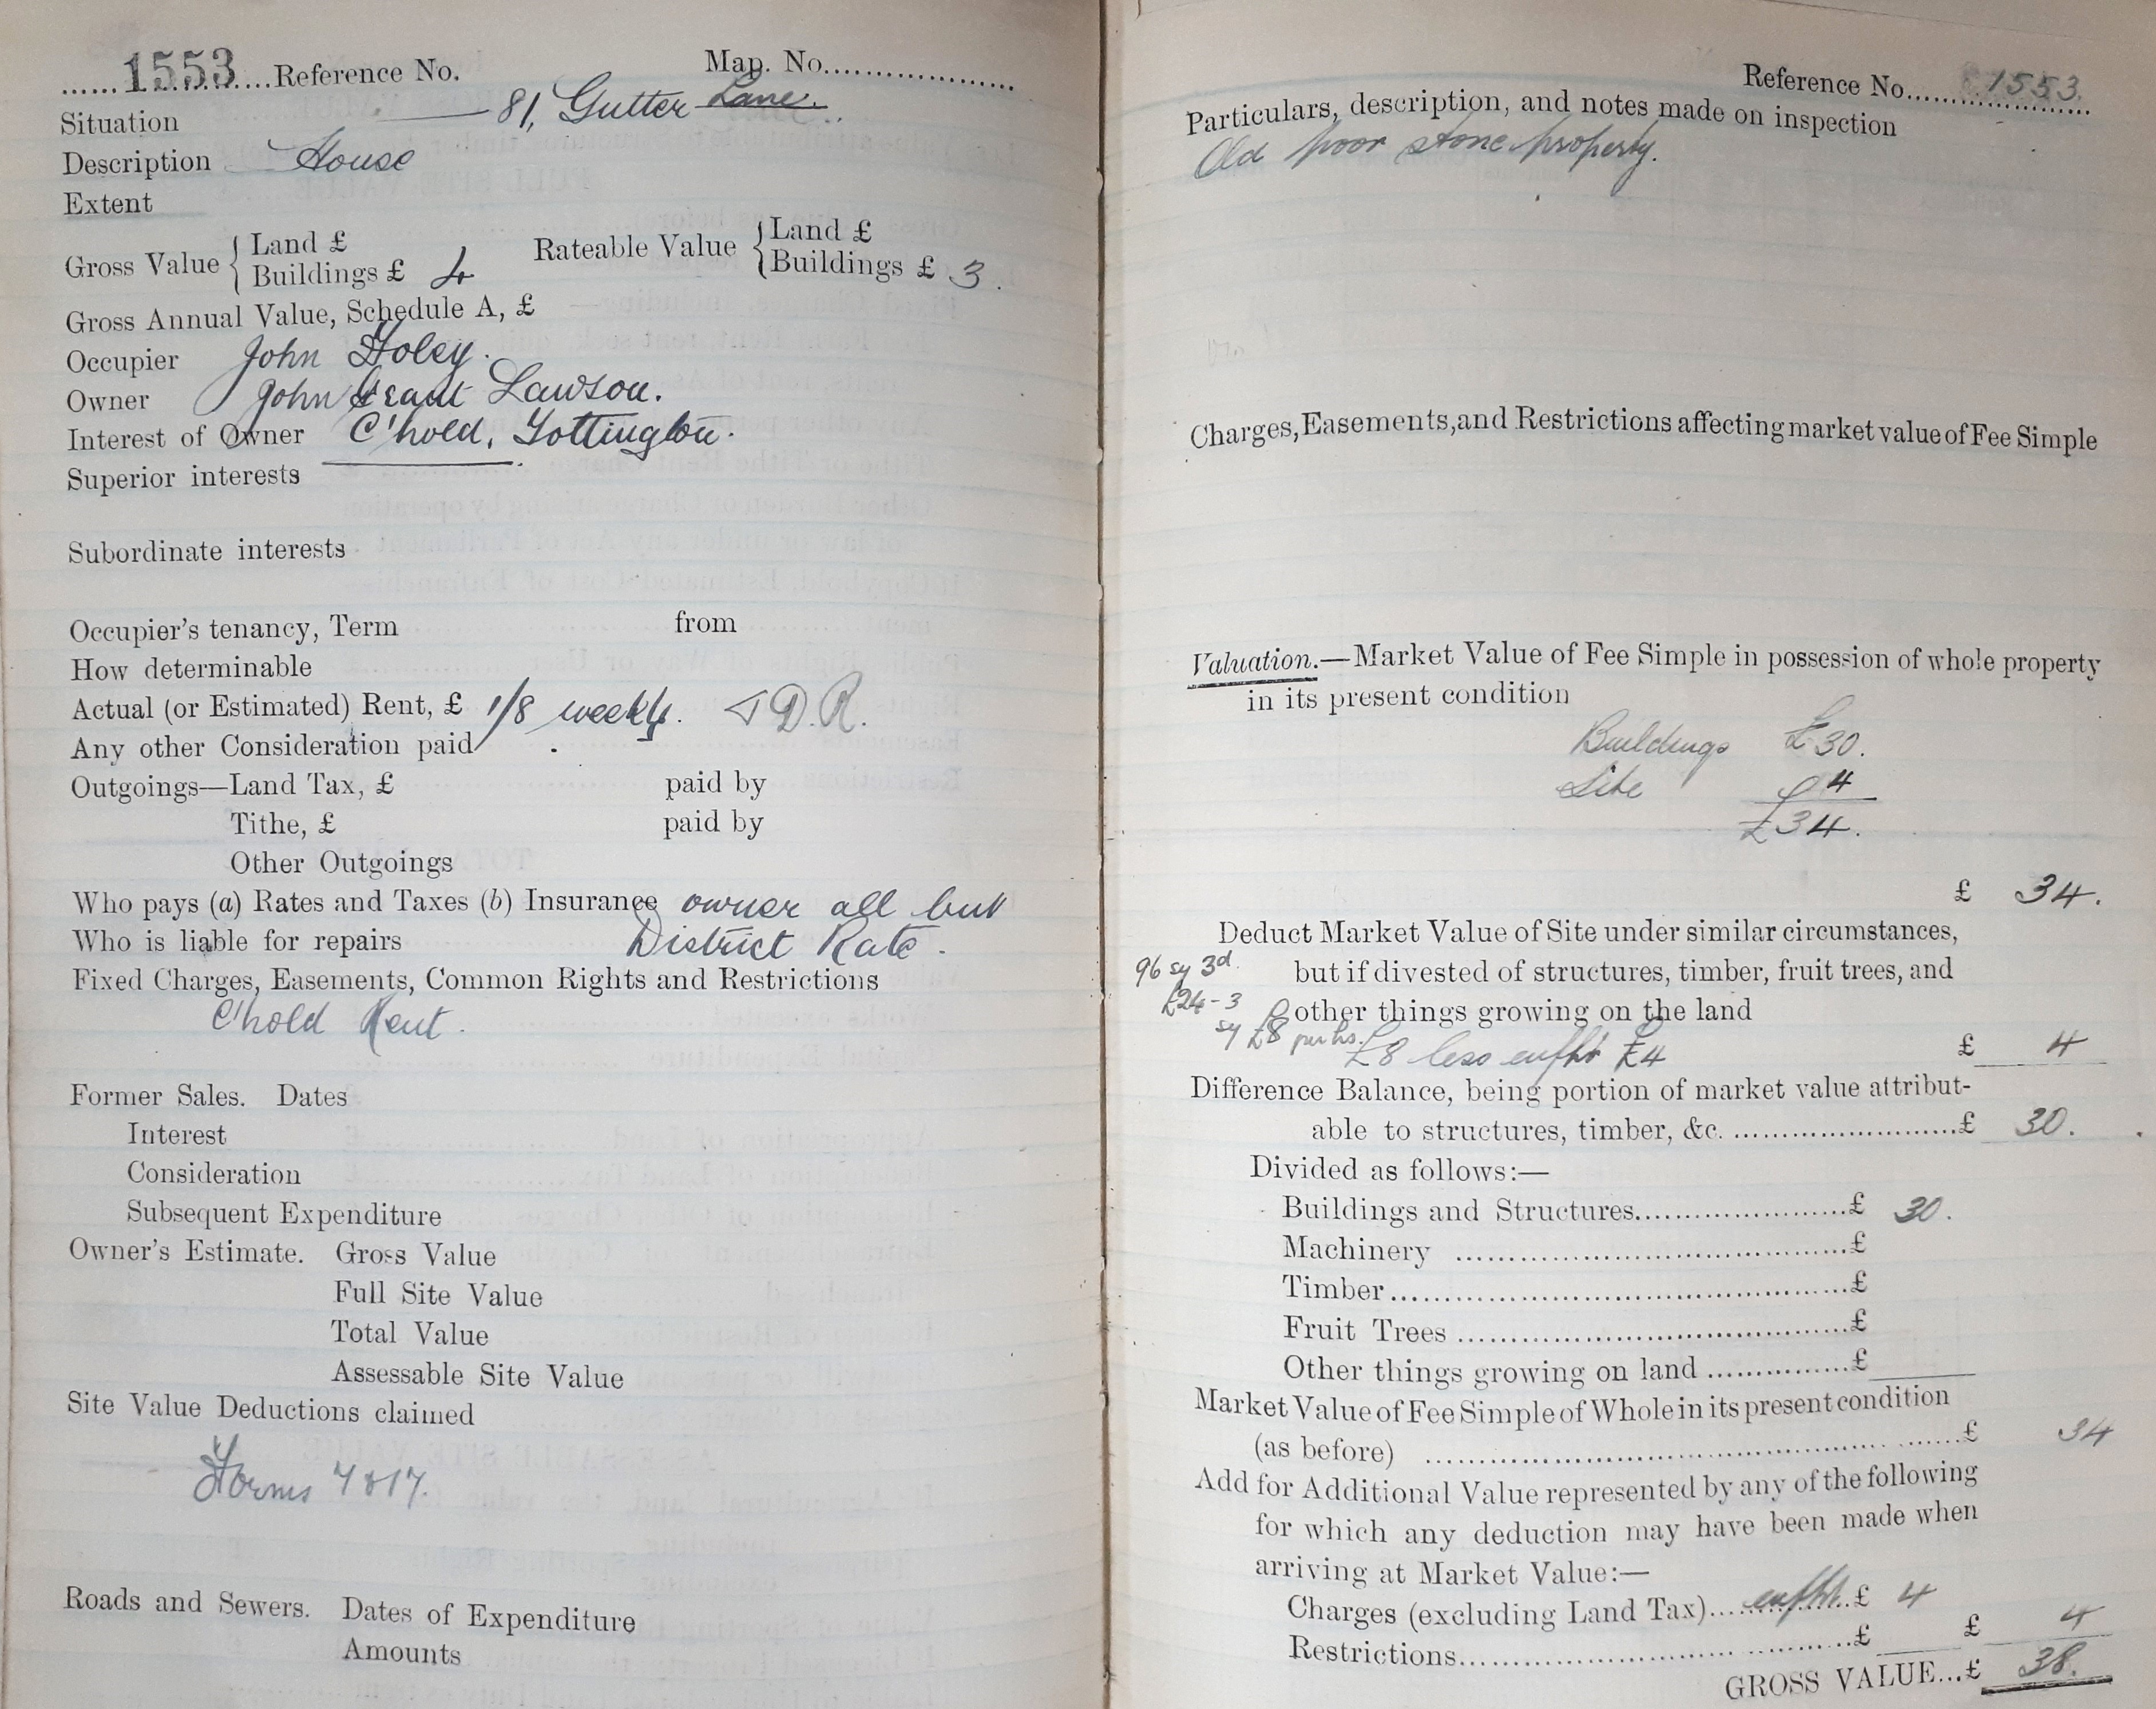 ......1553....Reference No. Map. No...................
Situation 81, Gutter Lane.
Description House
Extent
Gross Value { Land £ Rateable Value { Land £
Buildings £ 4 Buildings £ 3.
Gross Annual Value, Schedule A, £
Occupier John Holey.
Owner John Grant Lawson.
Interest of Owner C'hold, Tottington.
Superior interests
Subordinate interests
Occupier's tenancy, Term from
How determinable
Actual (or Estimated) Rent, £ 1/8 weekly. D.R.
Any other Consideration paid
Outgoings—Land Tax, £ paid by
Tithe, £ paid by
Other Outgoings
Who pays (a) Rates and Taxes (b) Insurance owner all but
Who is liable for repairs District Rate.
Fixed Charges, Easements, Common Rights and Restrictions
C'hold Rent.
Former Sales. Dates
Interest
Consideration
Subsequent Expenditure
Owner's Estimate. Gross Value
Full Site Value
Total Value
Assessable Site Value
Site Value Deductions claimed
Forms 4 & 17.
Roads and Sewers. Dates of Expenditure
Amounts
Reference No. 1553.
Particulars, description, and notes made on inspection
Old poor stone property.
Charges, Easements, and Restrictions affecting market value of Fee Simple
Valuation.—Market Value of Fee Simple in possession of whole property
in its present condition
Buildings £30.
Site 4
£34.
£ 34.
Deduct Market Value of Site under similar circumstances,
96 sy 3d. but if divested of structures, timber, fruit trees, and
£24-3 other things growing on the land
sy £8
£8 less enfht £4 £ 4
Difference Balance, being portion of market value attribut-
able to structures, timber, &c. ........................£ 30.
Divided as follows:—
Buildings and Structures......................£ 30.
Machinery ........................................£
Timber..............................................£
Fruit Trees .......................................£
Other things growing on land ..............£
Market Value of Fee Simple of Whole in its present condition
(as before) ......................................................£ 34
Add for Additional Value represented by any of the following
for which any deduction may have been made when
arriving at Market Value:—
Charges (excluding Land Tax)....enfht..£ 4
Restrictions......................................£ £ 4
GROSS VALUE...£ 38.